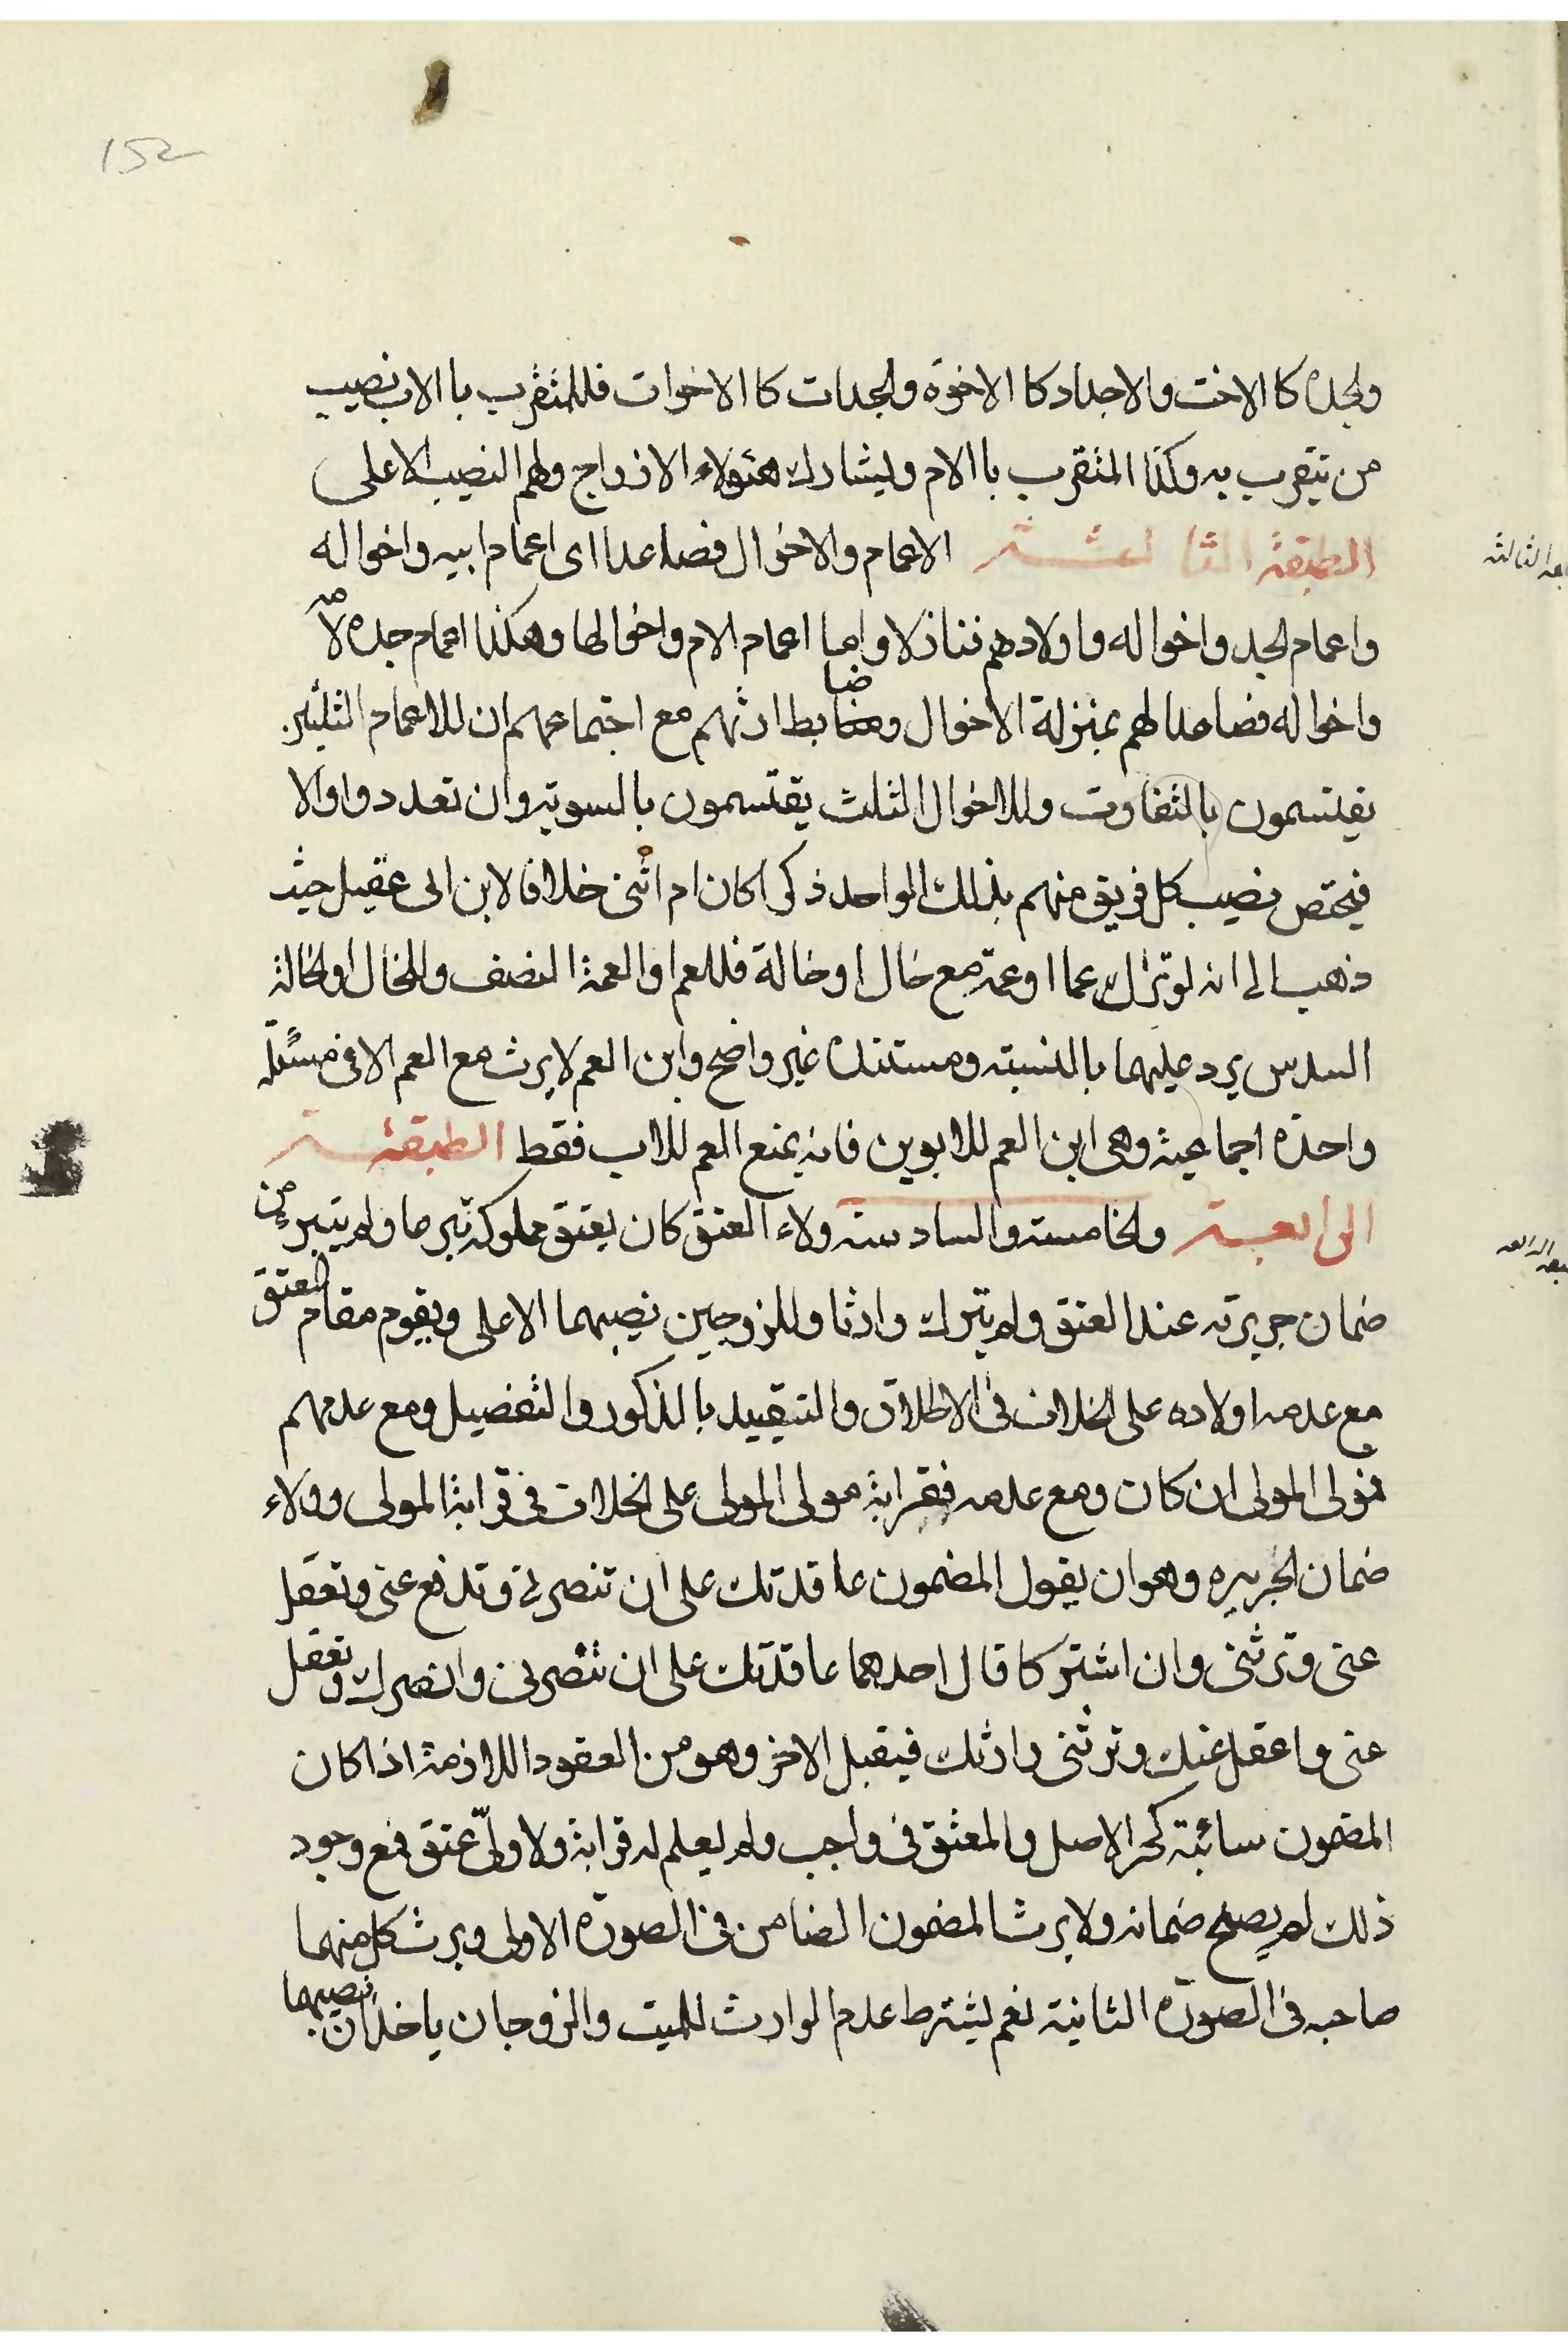 152
والجده كا الاخت والاجداد كا الاخوة والجدات كا الاخوات فللمتقرب با الاب نصيب
من يتقرب به وكذا المتقرب با الام ويشارك هئولاء الازواج ولهم النصيب الاعلى
الطبقة الثالثة الاعمام والاخوال فصاعدا اى اعمام ابيه واخواله
الثالثة
واعمام الجد واخواله واولادهم فنازلا واما اعمام الام واخوالها وهكذا اعمام جده لامه
واخواله فصاعدا لهم بمنزلة الاخوال وضابط ارثهم مع اجتماعهم ان للاعمام الثلثين
يقتسمون بالتفاوت وللاخوال الثلث يقتسمون بالسوية وان تعددوا والا
فيختص نصيب كل فريق منهم بذلك الواحد ذكرا كان ام انثى خلافا لابن ابى عقيل حيث
ذهب الى انه لو ترك عما او عمة مع خال او خالة فللعم او العمة النصف وللخال او الخالة
السدس يرد عليهما بالنسبته ومستنده غير واضح وابن العم لا يرث مع العم الا فى مسئلة
واحدة اجماعية وهى ابن العم للابوين فانه يمنع العم للاب فقط الطبقة
الرابعة والخامسة والسادسة ولاء العتق كان يعتق مملوكه تبرعا ولم يتبرء من
الرابعه
ضمان جريرته عند العتق ولم يترك وارثا وللزوجين نصيبهما الاعلى ويقوم مقام المعتق
مع عدمه اولاده على الخلاف فى الاطلاق والتقييد بالذكور والتفصيل ومع عدمهم
فمولى المولى ان كان ومع عدمه فقرابة مولى المولى على الخلاف فى قرابة المولى وولاء
ضمان الجريره وهو ان يقول المضمون عاقدتك على ان تنصرنى وتدفع عنى وتعقل
عنى وترثنى وان اشتركا قال احدهما عاقدتك على ان تنصرنى وانصرك وتعقل
عنى واعقل عنك وترثنى وارثك فيقبل الاخر وهو من العقود اللازمة اذا كان
المضمون سائبة كحر الاصل والمعتق فى واجب ولم يعلم له قرابة ولا ولى عتق فمع وجود
ذلك لم يصلح ضمانه ولا يرث المضمون الضامن فى الصورة الاولى ويرث كل منهما
صاحبه فى الصورة الثانية نعم يشترط عدم الوارث للميت والزوجان ياخذان نصيبهما